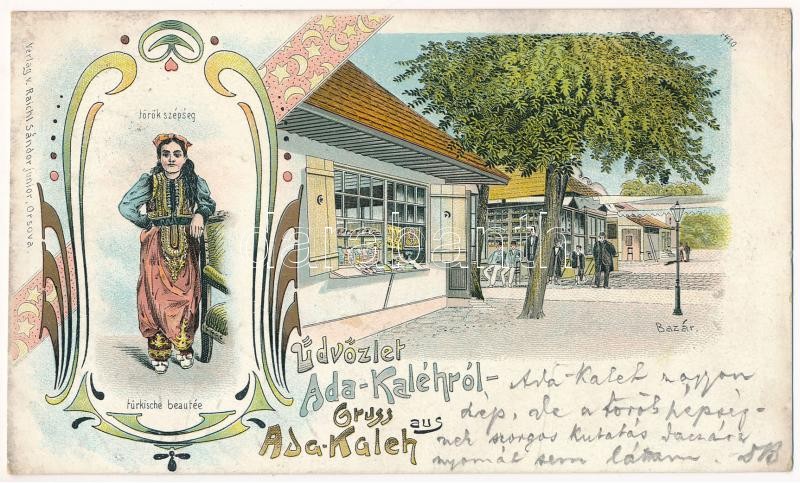 Verlag v. Raichl Sándor junior, Orsova.
török szépség
türkische beautée
Bazár.
Üdvözlet
Ada-Kaléhról-
Gruss aus
Ada-Kaleh
Ada-Kaleh nagyon
szép, de a török szépség-
nek szorgos kutatás daczára
nyomát sem láttam.
darabanth